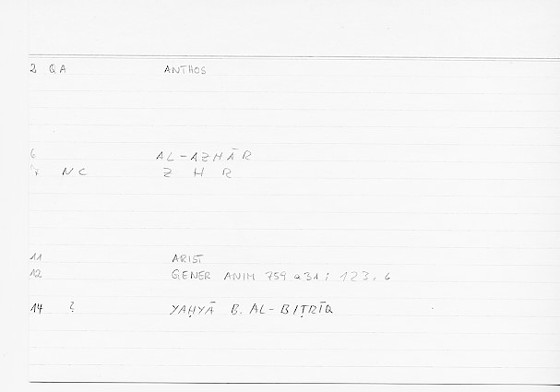 2 QA ANTHOS
6 AL-AZHĀR
NC Z H R
11 ARIST
12 GENER ANIM 759 a31; 123.6
14 ? YAḤYĀ B. AL-BIṬRĪQ